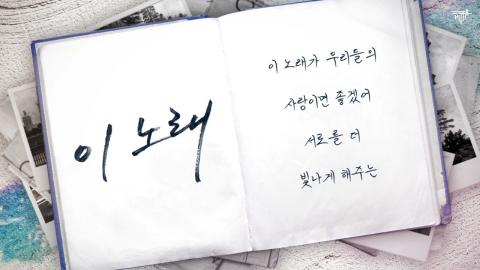 이 노래
이 노래가 우리들의
사랑이면 좋겠어
서로를 더
빛나게 해주는